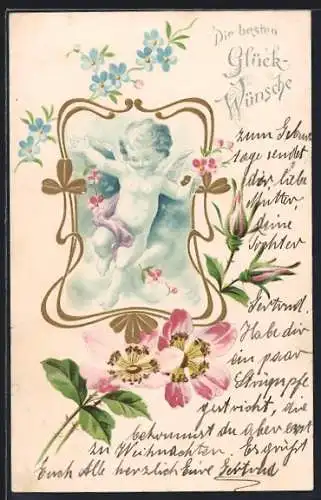 Die besten
Glück-
Wünsche
zum Geburts
tage sendet
dir liebe
Mutter,
deine
Tochter
Gertrud.
Habe dir
ein paar
Strümpfe
gestrickt, die
bekommst du aber erst
zu Weihnachten. Es grüßt
Euch Alle herzlich Eure Gertrud